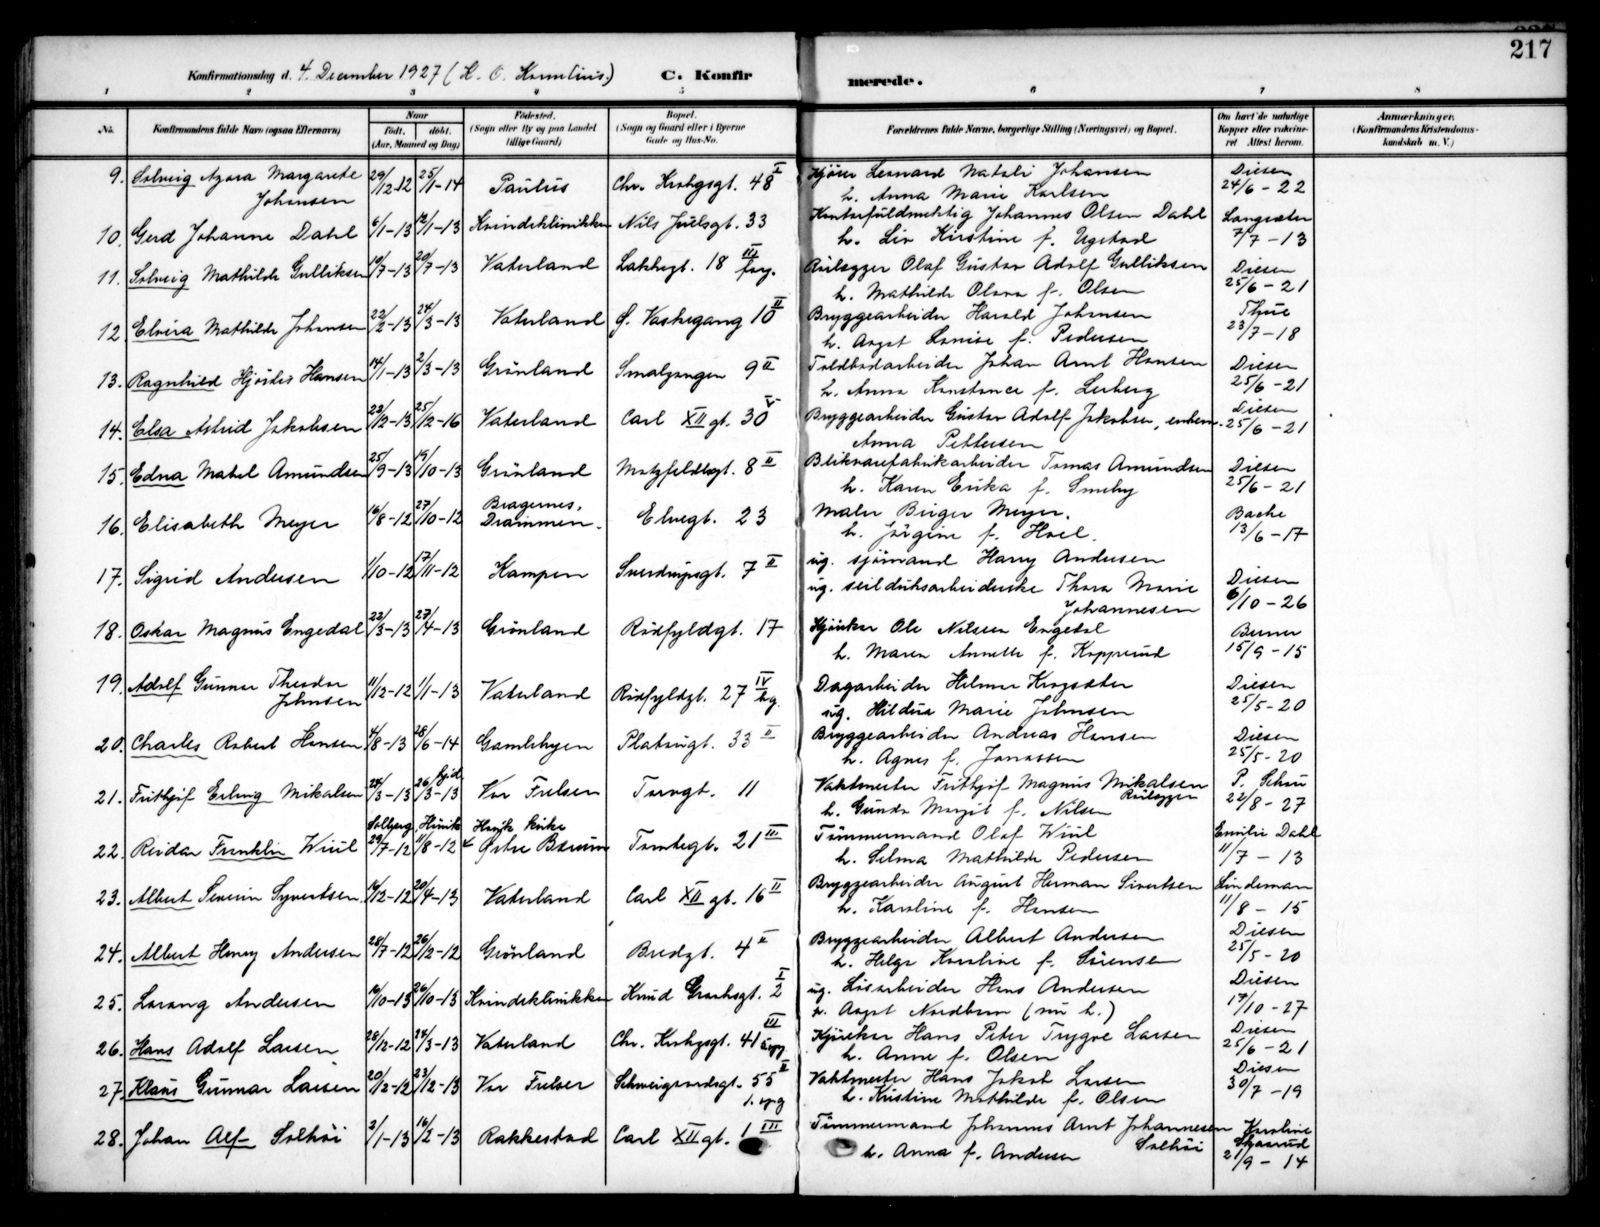 217
Konfirmationsdag d. 4. December 1927 (K. O. Kornelius.) C. Konfirmerede.
1 2 3 4 5 6 7 8
No. Konfirmandens fulde Navn (ogsaa Efternavn) Naar Født. døbt. (Aar, Maaned og Dag) Fødested. (Sogn eller By og paa Landet tillige Gaard) Bopæl. (Sogn og Gaard eller i Byerne Gade og Hus-No. Forældrenes fulde Navne, borgerlige Stilling (Næringsvei) og Bopæl. Om havt de naturlige Kopper eller vaccineret Attest herom. Anmerkninger. (Konfirmandens Kristendomskundskab m. V.)
9. Solveig Agora Margarete Johansen 29/12-12 25/1-14 Paulus Chr. Krohgsgt. 48 I Kjører Leonard Natali Johansen h. Anna Marie Karlsen Diesen 24/6-22
10. Gerd Johanne Dahl 6/1-13 12/1-13 Kvindeklinikken Nils Juelsgt. 33 Kontorfuldmektig Johannes Olsen Dahl h. Liv Kirstine f. Ugstad Langsæter 7/7-13
11. Solveig Mathilde Gulliksen 10/7-13 20/7-13 Vaterland Lakkegt. 18 III forg. Rørlægger Olaf Gustav Adolf Gulliksen h. Mathilde Olava f. Olsen Diesen 25/6-21
12 Elvira Mathilde Johansen 22/2-13 24/3-13 Vaterland Ø. Vaskegang 10 II Bryggearbeider Harald Johansen h. Aagot Lovise f. Pedersen Thue 23/7-18
13. Ragnhild Hjørdis Hansen 14/1-13 2/3-13 Grønland Smalgangen 9 II Toldbodarbeider Johan Arnt Hansen h. Anna Konstance f. Lerberg Diesen 25/6-21
14. Elsa Astrid Jakobsen 22/2-13 25/12-16 Vaterland Carl XII gt. 30 V Bryggearbeider Gustav Adolf Jakobsen, enkem. Anna Pettersen Diesen 25/6-21
15. Edna Mabel Amundsen 25/9-13 19/10-13 Grønland Motzfeldtsgt. 8 II Blikvarefabrikarbeider Tomas Amundsen h. Karen Erika f. Smeby Diesen 25/6-21
16. Elisabeth Meyer 16/8-12 27/10-12 Bragernes, Drammen. Elvegt. 23 Maler Birger Meyer. h. Jørgine f. Hoel. Bache 13/6-17
17. Sigrid Andersen 1/10-12 17/11-12 Kampen Sverdrupsgt. 7 II ug. sjømand Harry Andersen ug. seilduksarbeiderske Thora Marie Johannesen Diesen 6/10-26
18. Oskar Magnus Engedal 22/3-13 27/4-13 Grønland Rudfyldgt. 17 Kjøreker Ole Nilsen Engedal h. Maren Annette f. Kopperud Berner 15/9-15
19. Adolf Gunnar Theodor Johnsen 11/12-12 1/1-13 Vaterland Rudfyldgt. 27 IV bg. Dagarbeider Hilmar Krogsæter ug. Hildur Marie Johnsen Diesen 25/5-20
20. Charles Robert Hansen 4/8-13 28/6-14 Gamlebyen Platougt. 33 II Bryggearbeider Andreas Hansen h. Agnes f. Jonassen Diesen 25/5-20
21. Frithjof Erling Mikalsen 28/3-13 26/3-13 Vor Frelser Torvgt. 11 Vaktmester Frithjof Magnus Mikalsen Rørlegger h. Gunda Margit f. Nilsen P. Schou 22/8-27
22. Reidar Franklin Wiul Solberg 29/7-12 11/8-12 Østre Bærum Tomtegt. 21 III Tømmermand Olaf Wiul h. Selma Mathilde Pedersen Emilie Dahl 11/7-13
23. Albert Severin Syvertsen 16/12-12 20/4-13 Vaterland Carl XII gt. 16 II Bryggearbeider August Herman Sivertsen h. Karoline f. Hansen Lindeman 11/8-15
24. Albert Henry Andersen 28/7-12 26/12-12 Grønland Bredgt. 4 II Bryggearbeider Albert Andersen h. Helga Karoline f. Sørensen Diesen 25/5-20
25. Lorang Andersen 16/10-13 26/10-13 Kvindeklinikken Knud Graahsgt. 2 I ug. Løsarbeider Hans Andersen Aagot Nordbrum (nu h.) Diesen 17/10-27
26. Hans Adolf Larsen 28/12-12 24/3-13 Vaterland Chr. Krohgsgt. 41 III opg Kjøreker Hans Peter Trygve Larsen h. Anne f. Olsen Diesen 25/6-21
27. Klaus Gunnar Larsen 20/12-12 23/12-13 Vor Frelser Schweigaardsgt. 55 II 1. opg Vaktmester Hans Jakob Larsen h. Kristine Mathilde f. Olsen Diesen 30/7-19
28. Johan Alf Solhøi 2/1-13 16/2-13 Rakkestad Carl XII gt. 1 III Tømmermand Johannes Arnt Johannesen Solhøi h. Anna f. Andersen Karoline Skjaarud 21/9-14